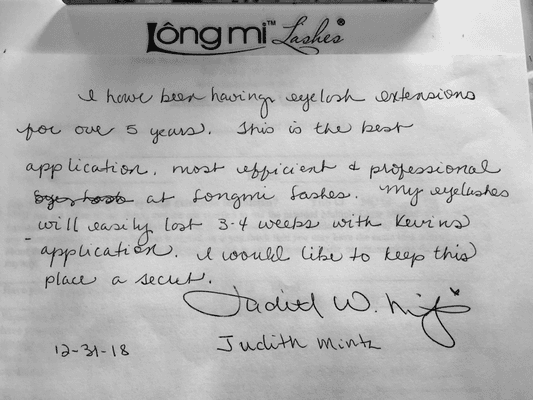 Lông mi™ Lashes®
I have been having eyelash extensions
for over 5 years. This is the best
application, most efficient & professional
at Longmi Lashes. My eyelashes
will easily last 3-4 weeks with Kevins
application. I would like to keep this
place a secret.
Judith W. Mintz
Judith Mintz
12-31-18